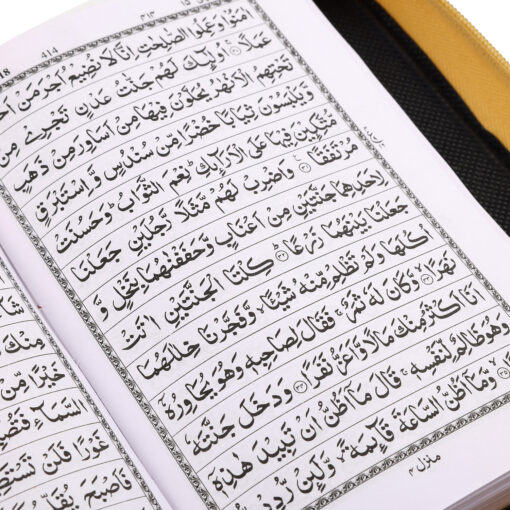 414
اٰمَنُوْا وَعَمِلُوا الصّٰلِحٰتِ اِنَّا لَا نُضِيْعُ اَجْرَ مَنْ
عَمَلًا ۚ﴿۳۰﴾ اُولٰٓئِكَ لَهُمْ جَنّٰتُ عَدْنٍ تَجْرِيْ مِنْ
تَحْتِهِمُ الْاَنْهٰرُ يُحَلَّوْنَ فِيْهَا مِنْ اَسَاوِرَ مِنْ ذَهَبٍ
وَّيَلْبَسُوْنَ ثِيَابًا خُضْرًا مِّنْ سُنْدُسٍ وَّاِسْتَبْرَقٍ
مُّتَّكِـِٕيْنَ فِيْهَا عَلَى الْاَرَآئِكِ ؕ نِعْمَ الثَّوَابُ ؕ وَحَسُنَتْ
مُرْتَفَقًا ﴿۳۱﴾ وَاضْرِبْ لَهُمْ مَّثَلًا رَّجُلَيْنِ جَعَلْنَا
لِاَحَدِهِمَا جَنَّتَيْنِ مِنْ اَعْنَابٍ وَّحَفَفْنٰهُمَا بِنَخْلٍ وَّ
جَعَلْنَا بَيْنَهُمَا زَرْعًا ﴿۳۲﴾ كِلْتَا الْجَنَّتَيْنِ اٰتَتْ
اُكُلَهَا وَلَمْ تَظْلِمْ مِّنْهُ شَيْـًٔا ۙ وَّفَجَّرْنَا خِلٰلَهُمَا
نَهَرًا ﴿۳۳﴾ وَّكَانَ لَهٗ ثَمَرٌ ۚ فَقَالَ لِصَاحِبِهٖ وَهُوَ يُحَاوِرُهٗٓ
اَنَا اَكْثَرُ مِنْكَ مَالًا وَّاَعَزُّ نَفَرًا ﴿۳۴﴾ وَدَخَلَ جَنَّتَهٗ
وَهُوَ ظَالِمٌ لِّنَفْسِهٖ ۚ قَالَ مَآ اَظُنُّ اَنْ تَبِيْدَ هٰذِهٖٓ
وَّمَآ اَظُنُّ السَّاعَةَ قَآئِمَةً ۙ وَّلَئِنْ
منزل ۴
مِنْكَ
خَيْرًا مِّنْ
السَّمَآءِ
غَوْرًا فَلَنْ
فَاَصْبَحَ يُقَلِّبُ